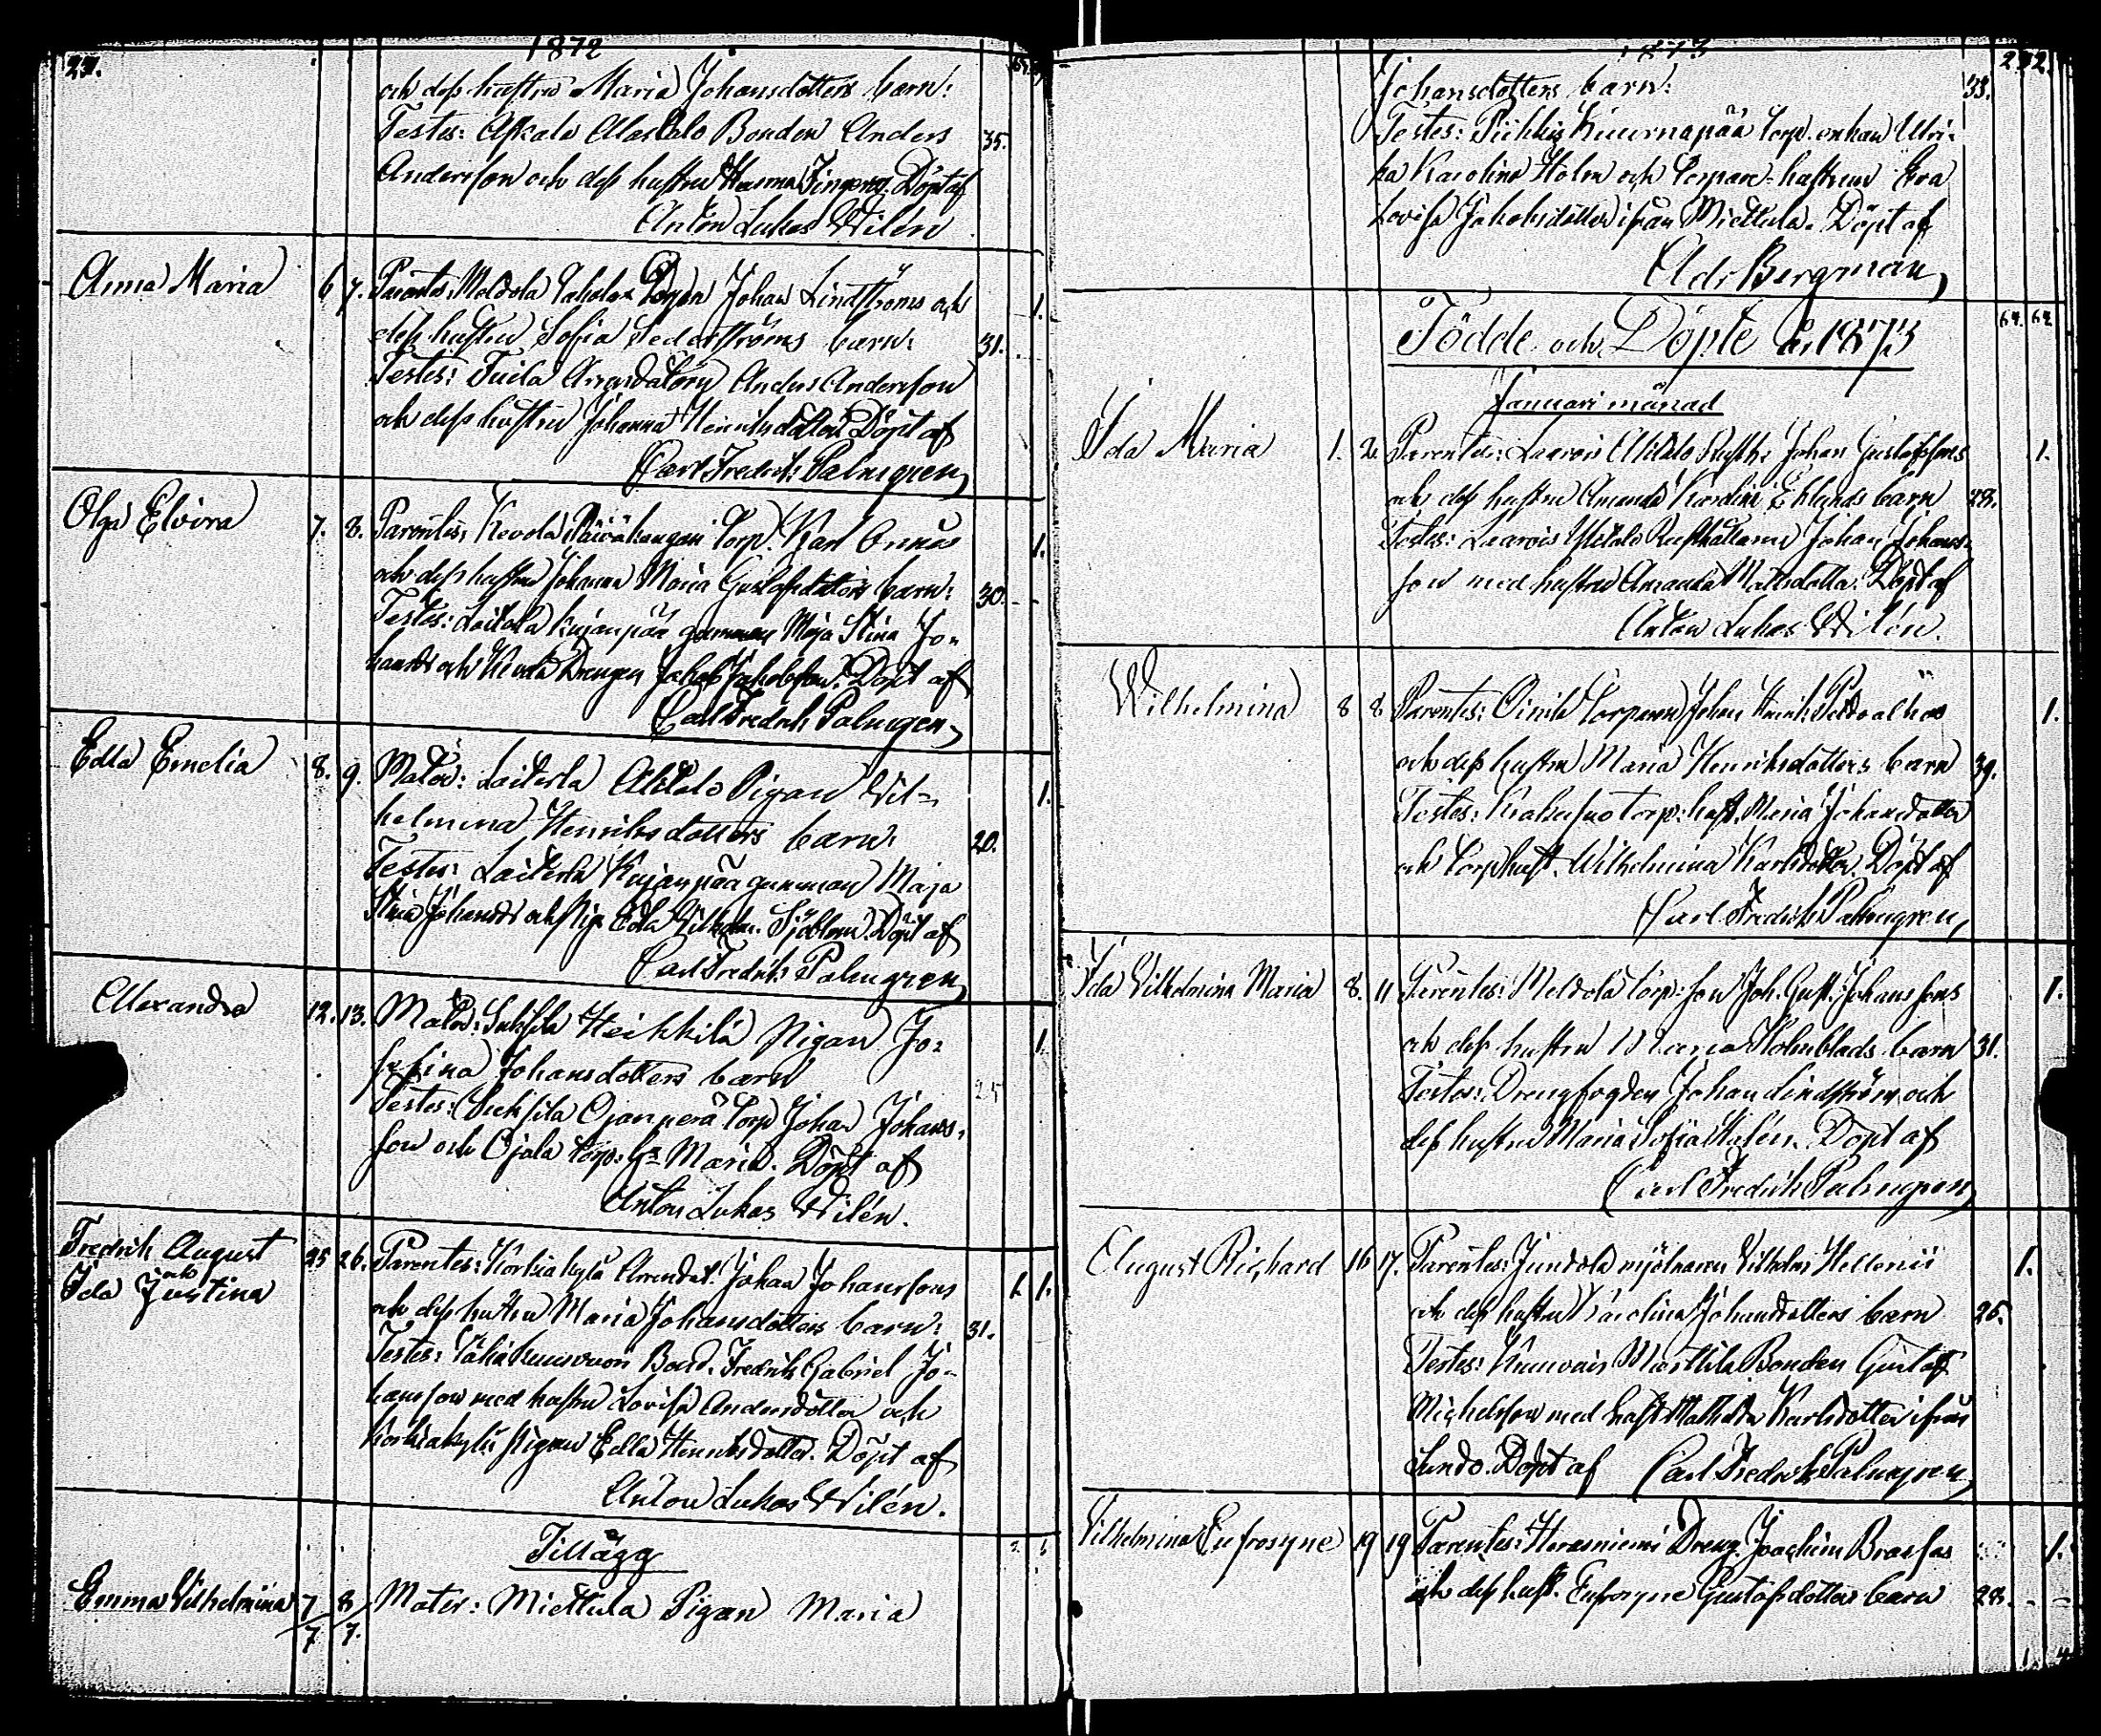 27. 1872
och dess hustru Maria Johansdotters barn:
Testes: Askala Alastalo Bonden Anders 35.
Andersson och dess hustru Hanna Döpt af
Anton Lukas Wilén
Anna Maria 6 7. Parentes: Moldola Johan Lindströms och 1.
dess hustru Sofia Sederströms barn: 31.
Testes: Tuila Anders Andersson
och dess hustru Johanna Henriksdotter Döpt af
Carl Fredrik Palmgren
Olga Elvira 7. 8. Parentes: Kevola Torp. Karl 1.
och dess hustru Johanna Maria Gustafsdotters barn: 30.
Testes: Kujanpää gumman Maja Stina Jo-
hansdr och Drengen Jakob Jakobsson. Döpt af
Carl Fredrik Palmgren
Edla Emelia 8. 9. Mater: Laiterla Alitalo Pigan Wil- 1.
helmina Henriksdotters barn: 20.
Testes: Laiterla Kujanpää gumman Maja
Stina Johansdr och Pig. Edla Vilhelm. Sjöblom. Döpt af
Carl Fredrik Palmgren
Alexandra 12. 13. Mater: Suksila Heikkilä Pigan Jo- 1
sefina Johansdotters barn 25
Testes: Suksila Ojanperä Torp Johan Johans-
son och Ojala torp: hu Maria. Döpt af
Anton Lukas Wilén.
Fredrik August 25 26. Parentes: Korkiakylä Arrendat. Johan Johanssons 1. 1.
och
Ida Justina och dess hustru Maria Johansdotters barn: 31.
Testes: Bond. Fredrik Gabriel Jo-
hansson med hustru Lovisa Andersdotter och
Korkiakylä pigan Edla Henriksdotter. Döpt af
Anton Lukas Wilén.
Tillägg
Emma Vilhelmina 7/7 8/7. Mater: Miettula Pigan Maria
1873 232.
Johansdotters barn: 33.
Testes: Piikkis Kuurnapää Torp. enkan Ulri-
ka Karolina Holm och Torpare-hustrun Eva
Lovisa Jakobsdotter ifrån Miettula. Döpt af
Ad: Bergman
Födde och Döpte år 1873 64. 64
Januari månad
Ida Maria 1. 2. Parentes: Alitalo Rusth: Johan Gustafssons 1.
och dess hustru Amanda Karolina Eklunds barn 28.
Testes: Ylitalo Rusthållaren Johan Johans-
son med hustru Amanda Mattsdotter. Döpt af
Anton Lukas Wilén.
Wilhelmina 8 8 Parentes: Torparen Johan Henr: 1.
och dess hustru Maria Henriksdotters barn 39.
Testes: torp: hust. Maria Johansdotter
och Torp hust. Wilhelmina Karlsdotter. Döpt af
Carl Fredrik Palmgren
Ida Vilhelmina Maria 8. 11 Parentes: Meldola torp: son Joh. Gust. Johanssons 1.
och dess hustru Maria Holmblads barn 31.
Testes: Drengfogden Johan Lindström och
dess hustru Maria Sofia Walén. Döpt af
Carl Fredrik Palmgren
August Richard 16 17. Parentes: Junnola mjölnaren Vilhelm Hellenii 1.
och dess hustru Karolina Johansdotters barn 26.
Testes: Marttila Bonden Gustaf
Michelsson med hust. Mathilda Karlsdotter ifrån
Lundo. Döpt af Carl Fredrik Palmgren
Vilhelmina Eufrosyne 19 19 Parentes: Harvaniemi Dreng Joachim 1.
och dess hust. Eufrosyne Gustafsdotters barn 28.
1. 4